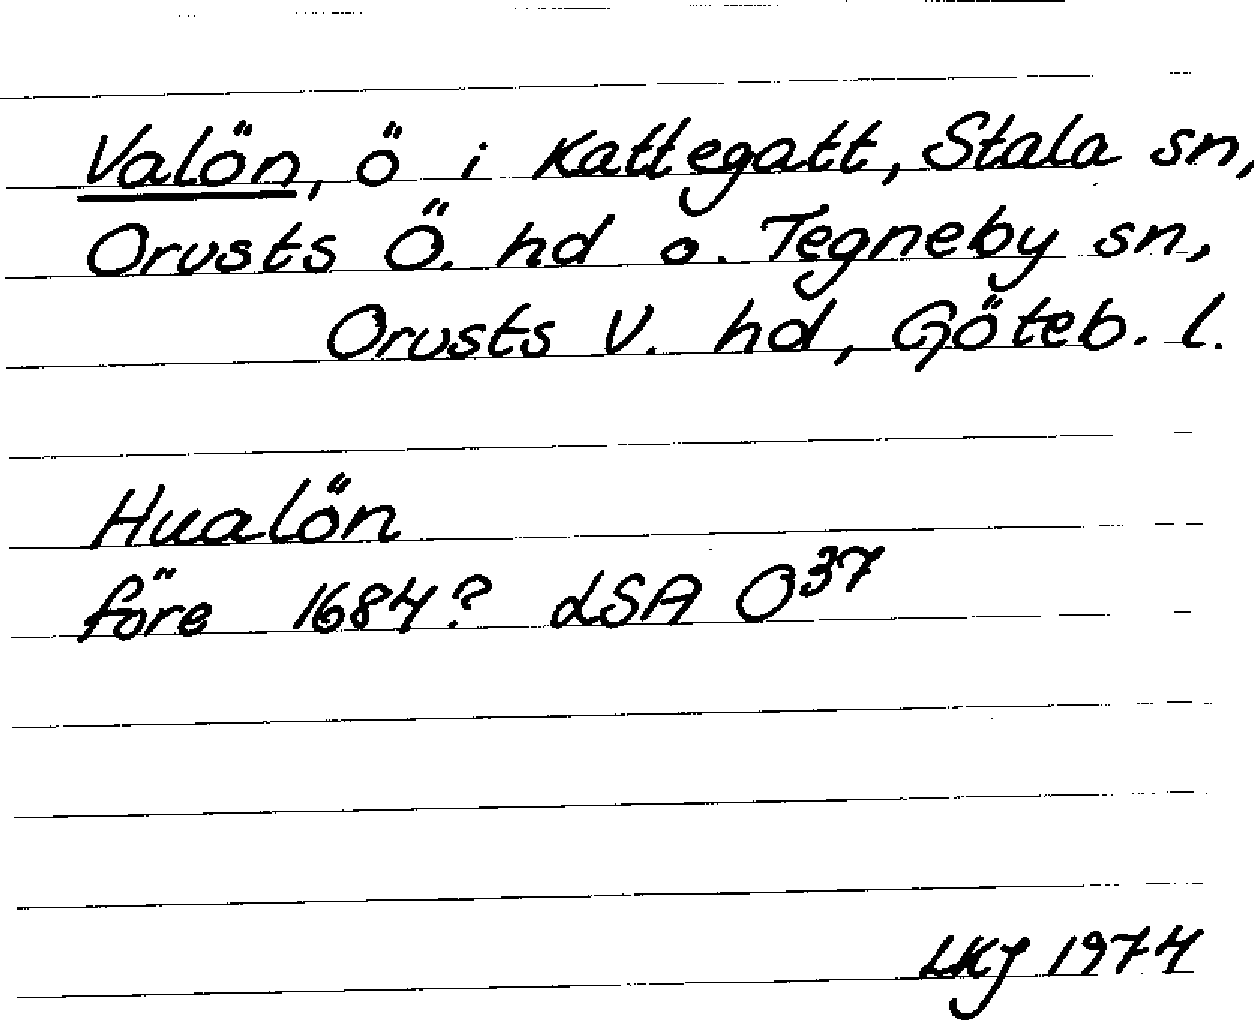 Valön, ö i Kattegatt, Stala sn,
Orusts Ö. hd o. Tegneby sn,
Orusts V. hd, Göteb. l.
Hualön
före 1684? LSA O³⁷
LKJ 1974